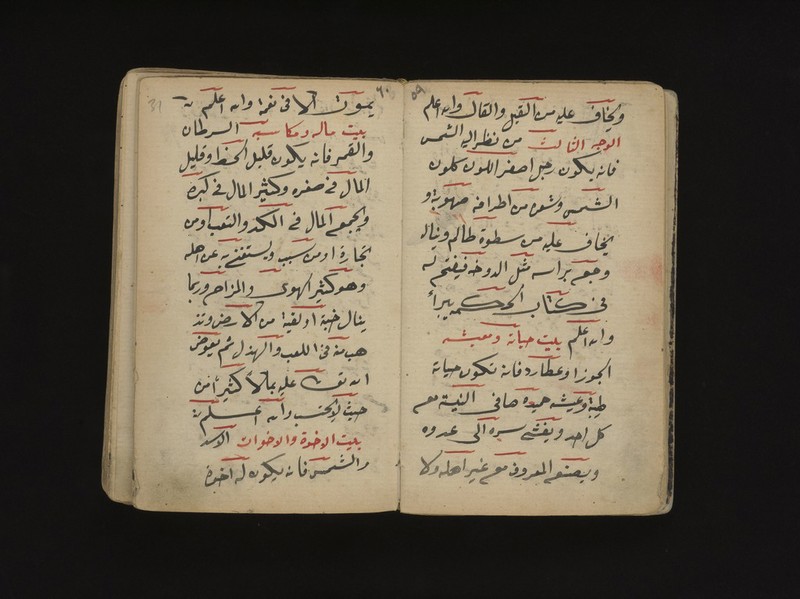 ٥٩
ويخاف عليه من القيل والقال والله اعلم
الوجه الثالث من نظر اليه الشمس
فانه يكون رجل اصفر اللون كلون
الشمس وشعر من اطرافه صهوبة و
يخاف عليه من سطوة ظالم ويناله
وجع براسه مثل الدوخه فيفتح له
في كتاب الحكمه يبرأ
والله اعلم بيت حياته ومعيشته
الجوزا وعطارد فانه تكون حياته
طيبة وعيشه حميده صافى النية مع
كل احد ويفشى سره الى عدوه
ويصنع المعروف مع غير اهله ولا
٦٠
31
يموت الا في نعمة والله اعلم
بيت ماله ومكاسبه السرطان
والقمر فانه يكون قليل الحظ وقليل
المال في صغره وكثير المال في كبره
ويجمع المال في الكد والتعب او من
تجارة او من سبب ويستغنى به عن اهله
وهو كثير الهوى والمزاح وربما
ينال خبية او لقية من الارض وتذ
هب منه في اللعب والهزل ثم يعوض
الله تعالى عليه بمالا كثيرا من
حيث لا يحتسب والله اعلم
بيت الاخوة والاخوات الاسد
والشمس فانه يكون له اخوة